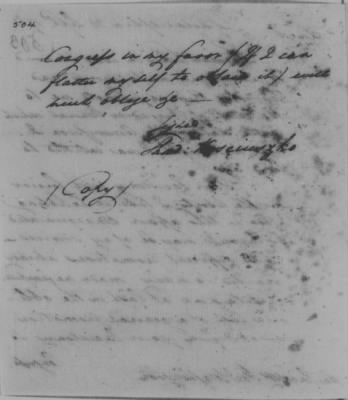 504
Congress in my favor (if I can
flatter myself to obtain it) will
much oblige &c —
Signed
Thad: Kosciuszko
(Copy)